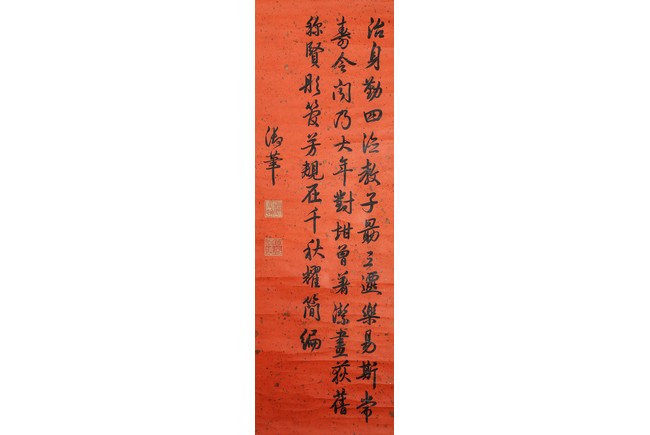 治身勤四德教子最三遷樂易斯常
壽令聞乃大年對坩曾著潔畫荻舊
稱賢彤管芳規在千秋耀簡編
御筆